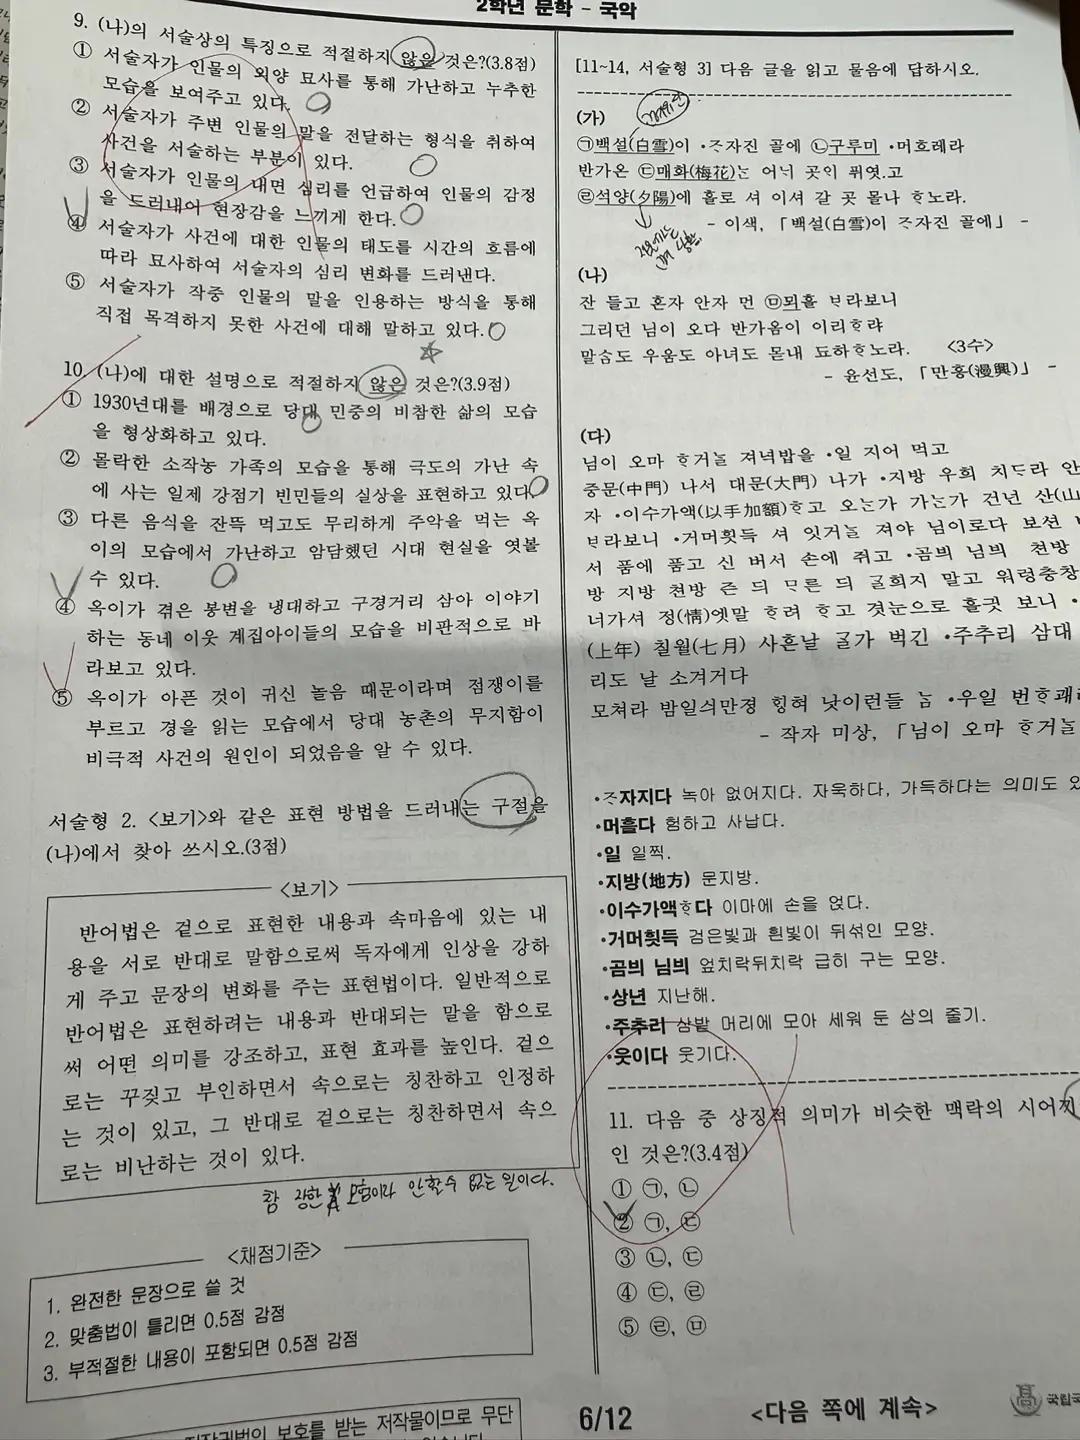 2학년 문학 - 국악
9. (나)의 서술상의 특징으로 적절하지 않은 것은?(3.8점)
① 서술자가 인물의 외양 묘사를 통해 가난하고 누추한
모습을 보여주고 있다.
② 서술자가 주변 인물의 말을 전달하는 형식을 취하여
사건을 서술하는 부분이 있다.
③ 서술자가 인물의 내면 심리를 언급하여 인물의 감정
을 드러내어 현장감을 느끼게 한다.
④ 서술자가 사건에 대한 인물의 태도를 시간의 흐름에
따라 묘사하여 서술자의 심리 변화를 드러낸다.
⑤ 서술자가 작중 인물의 말을 인용하는 방식을 통해
직접 목격하지 못한 사건에 대해 말하고 있다.
10. (나)에 대한 설명으로 적절하지 않은 것은?(3.9점)
① 1930년대를 배경으로 당대 민중의 비참한 삶의 모습
을 형상화하고 있다.
② 몰락한 소작농 가족의 모습을 통해 극도의 가난 속
에 사는 일제 강점기 빈민들의 실상을 표현하고 있다.
③ 다른 음식을 잔뜩 먹고도 무리하게 주악을 먹는 옥
이의 모습에서 가난하고 암담했던 시대 현실을 엿볼
수 있다.
④ 옥이가 겪은 봉변을 냉대하고 구경거리 삼아 이야기
하는 동네 이웃 계집아이들의 모습을 비판적으로 바
라보고 있다.
⑤ 옥이가 아픈 것이 귀신 놀음 때문이라며 점쟁이를
부르고 경을 읽는 모습에서 당대 농촌의 무지함이
비극적 사건의 원인이 되었음을 알 수 있다.
서술형 2. <보기>와 같은 표현 방법을 드러내는 구절을
(나)에서 찾아 쓰시오.(3점)
<보기>
반어법은 겉으로 표현한 내용과 속마음에 있는 내
용을 서로 반대로 말함으로써 독자에게 인상을 강하
게 주고 문장의 변화를 주는 표현법이다. 일반적으로
반어법은 표현하려는 내용과 반대되는 말을 함으로
써 어떤 의미를 강조하고, 표현 효과를 높인다. 겉으
로는 꾸짖고 부인하면서 속으로는 칭찬하고 인정하
는 것이 있고, 그 반대로 겉으로는 칭찬하면서 속으
로는 비난하는 것이 있다.
참 장한 모험이라 안할수 없는 일이다.
<채점기준>
1. 완전한 문장으로 쓸 것
2. 맞춤법이 틀리면 0.5점 감점
3. 부적절한 내용이 포함되면 0.5점 감점
보호를 받는 저작물이므로 무단
[11~14, 서술형 3] 다음 글을 읽고 물음에 답하시오.
(가)
㉠백설(白雪)이 •ᄌᆞ자진 골에 ㉡구루미 •머흐레라
반가온 ㉢매화(梅花)ᄂᆞᆫ 어ᄂᆡ 곳이 퓌엿ᄂᆞᆫ고
㉣석양(夕陽)에 홀로 셔 이셔 갈 곳 몰나 ᄒᆞ노라.
- 이색, 「백설(白雪)이 ᄌᆞ자진 골에」 -
(나)
잔 들고 혼자 안자 먼 ㉤뫼흘 ᄇᆞ라보니
그리던 님이 오다 반가옴이 이리ᄒᆞ랴
말ᄉᆞᆷ도 우움도 아녀도 몯내 됴하ᄒᆞ노라. <3수>
- 윤선도, 「만흥(漫興)」 -
(다)
님이 오마 ᄒᆞ거ᄂᆞᆯ 져녁밥을 •일 지어 먹고
중문(中門) 나서 대문(大門) 나가 •지방 우희 치ᄃᆞ라 안
자 •이수가액(以手加額)ᄒᆞ고 오ᄂᆞᆫ가 가ᄂᆞᆫ가 건넌 산(山
ᄇᆞ라보니 •거머횟득 셔 잇거ᄂᆞᆯ 져야 님이로다 보션
서 품에 품고 신 버서 손에 쥐고 •곰븨 님븨 쳔방
방 지방 쳔방 즌 듸 ᄆᆞ른 듸 ᄀᆞᆯ희지 말고 워렁충창
너가셔 정(情)엣말 ᄒᆞ려 ᄒᆞ고 겻눈으로 흘긧 보니 •
(上年) 칠월(七月) 사흔날 ᄀᆞᆯ가 벅긴 •주추리 삼대
리도 날 소겨거다
모쳐라 밤일싀만졍 ᄒᆡᆼ혀 낫이런들 ᄂᆞᆷ •우일 번ᄒᆞ괘라
- 작자 미상, 「님이 오마 ᄒᆞ거ᄂᆞᆯ
•ᄌᆞ자지다 녹아 없어지다. 자욱하다, 가득하다는 의미도 있
•머흘다 험하고 사납다.
•일 일찍.
•지방(地方) 문지방.
•이수가액ᄒᆞ다 이마에 손을 얹다.
•거머횟득 검은빛과 흰빛이 뒤섞인 모양.
•곰븨 님븨 엎치락뒤치락 급히 구는 모양.
•상년 지난해.
•주추리 삼밭 머리에 모아 세워 둔 삼의 줄기.
•웃이다 웃기다.
11. 다음 중 상징적 의미가 비슷한 맥락의 시어끼
인 것은?(3.4점)
① ㉠, ㉡
② ㉠, ㉢
③ ㉡, ㉢
④ ㉢, ㉣
⑤ ㉣, ㉤
6/12
<다음 쪽에 계속>
국립국